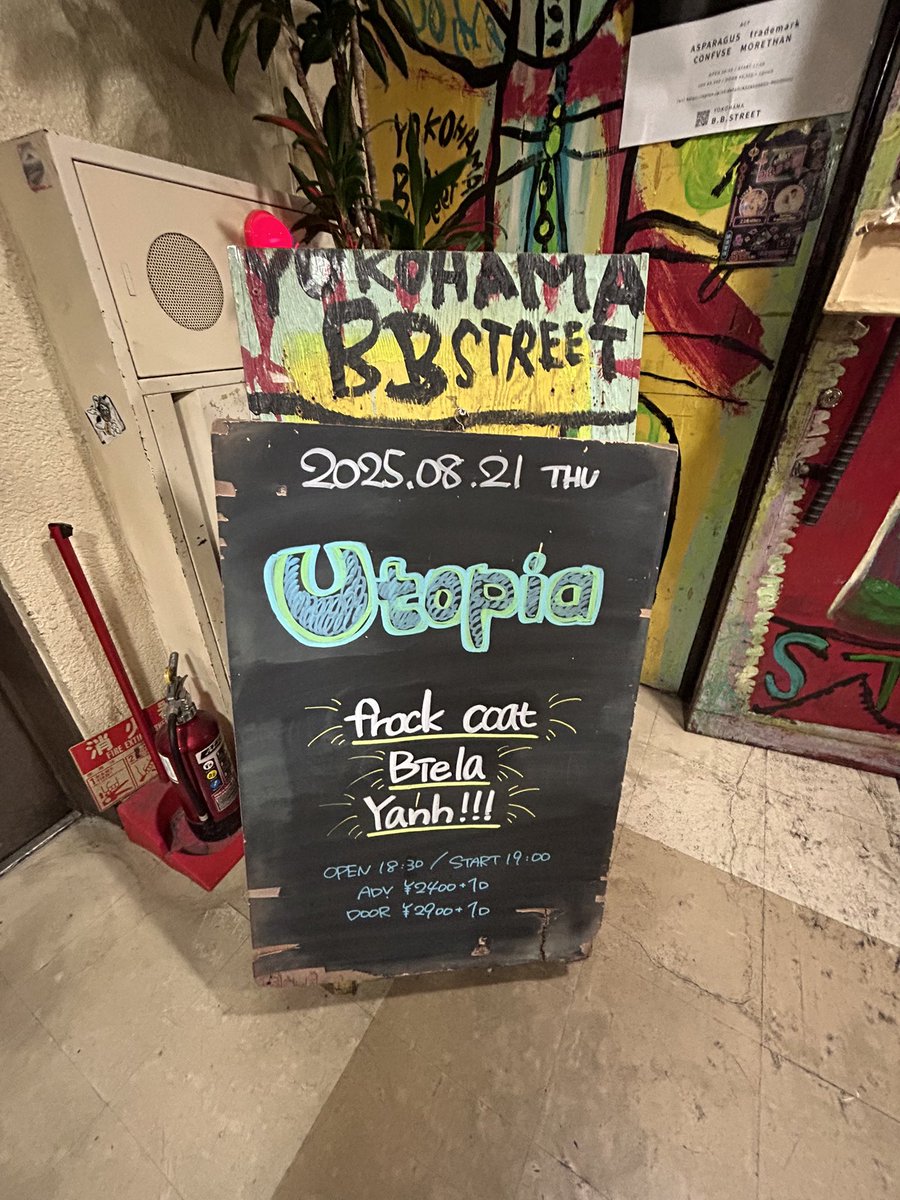 ASPARAGUS trademark
CONFVSE MORETHAN
YOKOHAMA
B.B.STREET
YOKOHAMA
YOKOHAMA
BB STREET
2025.08.21 THU
Utopia
frock coat
BTela
Yanh!!!
OPEN 18:30 / START 19:00
ADV ¥2400+1D
DOOR ¥2900+1D
消火
FIRE EXTI
ST